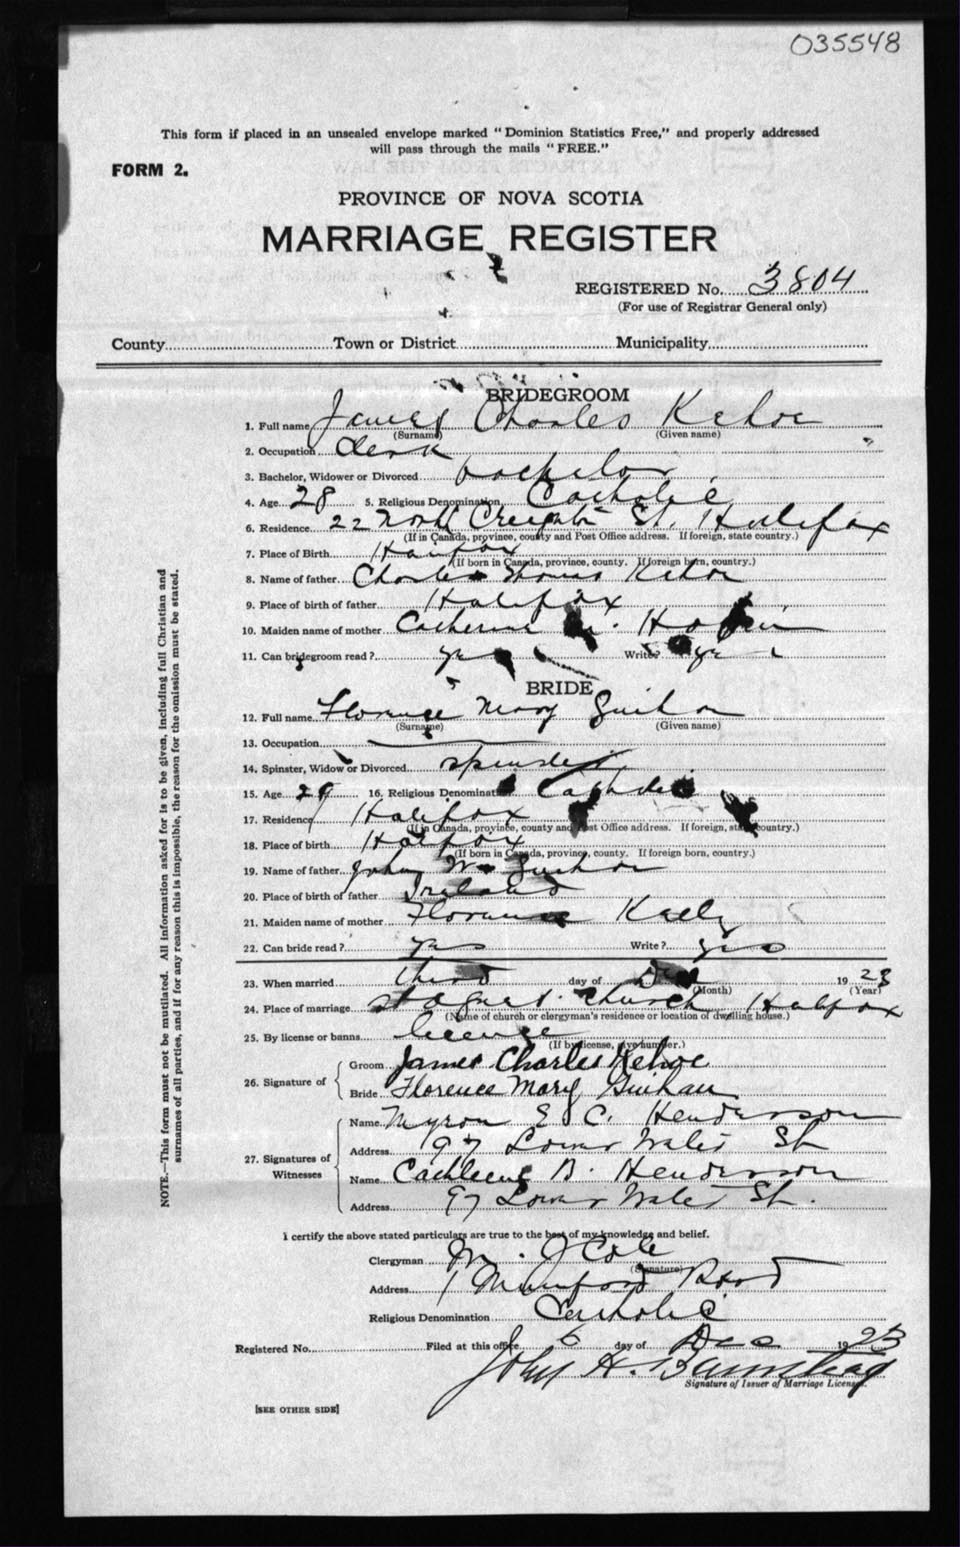 035548
This form if placed in an unsealed envelope marked "Dominion Statistics Free," and properly addressed
will pass through the mails "FREE."
FORM 2.
PROVINCE OF NOVA SCOTIA
MARRIAGE REGISTER
REGISTERED No. 3804
(For use of Registrar General only)
County Town or District Municipality
BRIDEGROOM
1. Full name James Charles Kehoe
(Surname) (Given name)
2. Occupation Clerk
3. Bachelor, Widower or Divorced bachelor
4. Age 28 5. Religious Denomination Catholic
6. Residence 22 North Creighton St. Halifax
(If in Canada, province, county and Post Office address. If foreign, state country.)
7. Place of Birth Halifax
(If born in Canada, province, county. If foreign born, country.)
8. Name of father Charles Thomas Kehoe
9. Place of birth of father Halifax
10. Maiden name of mother Catherine
11. Can bridegroom read? yes Write? yes
BRIDE
12. Full name Florence Mary Guihan
(Surname) (Given name)
13. Occupation
14. Spinster, Widow or Divorced spinster
15. Age 29 16. Religious Denomination Catholic
17. Residence Halifax
(If in Canada, province, county and Post Office address. If foreign, state country.)
18. Place of birth Halifax
(If born in Canada, province, county. If foreign born, country.)
19. Name of father John W. Guihan
20. Place of birth of father Ireland
21. Maiden name of mother Florence Kelly
22. Can bride read? yes Write? yes
23. When married third day of Dec 1923
(Month) (Year)
24. Place of marriage St Agnes Church Halifax
(Name of church or clergyman's residence or location of dwelling house.)
25. By license or banns license
(If by license, give number.)
26. Signature of Groom James Charles Kehoe
Bride Florence Mary Guihan
27. Signatures of Witnesses
Name Myron E C. Henderson
Address 97 Lower Water St
Name Cathleene B. Henderson
Address 97 Lower Water St.
I certify the above stated particulars are true to the best of my knowledge and belief.
Clergyman M. J Cole
(Signature)
Address 1 Mumford Road
Religious Denomination Catholic
Registered No. Filed at this office 6 day of Dec 1923
John H. Barnstead
Signature of Issuer of Marriage License.
[SEE OTHER SIDE]
NOTE.—This form must not be mutilated. All information asked for is to be given, including full Christian and
surnames of all parties, and if for any reason this is impossible, the reason for the omission must be stated.